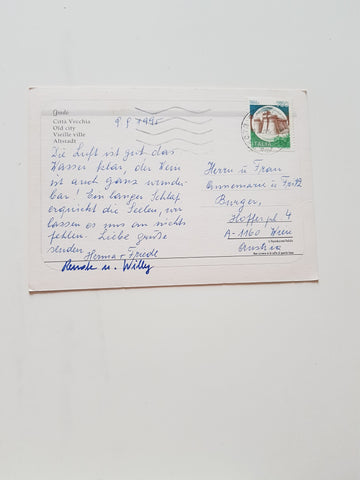 Grado
Città Vecchia
Old city
Vieille ville
Altstadt
9 9 1995
Die Luft ist gut das
Wasser klar, der Wein
ist auch ganz wunder-
bar! Ein langer Schlaf
erquickt die Seelen, wir
lassen es uns an nichts
fehlen. Liebe Grüße
senden
Herma + Friedl
Renate u. Willy
ITALIA
Herrn u Frau
Annemarie u Fritz
Burger,
Hofferpl. 4
A-1160 Wien
Austria